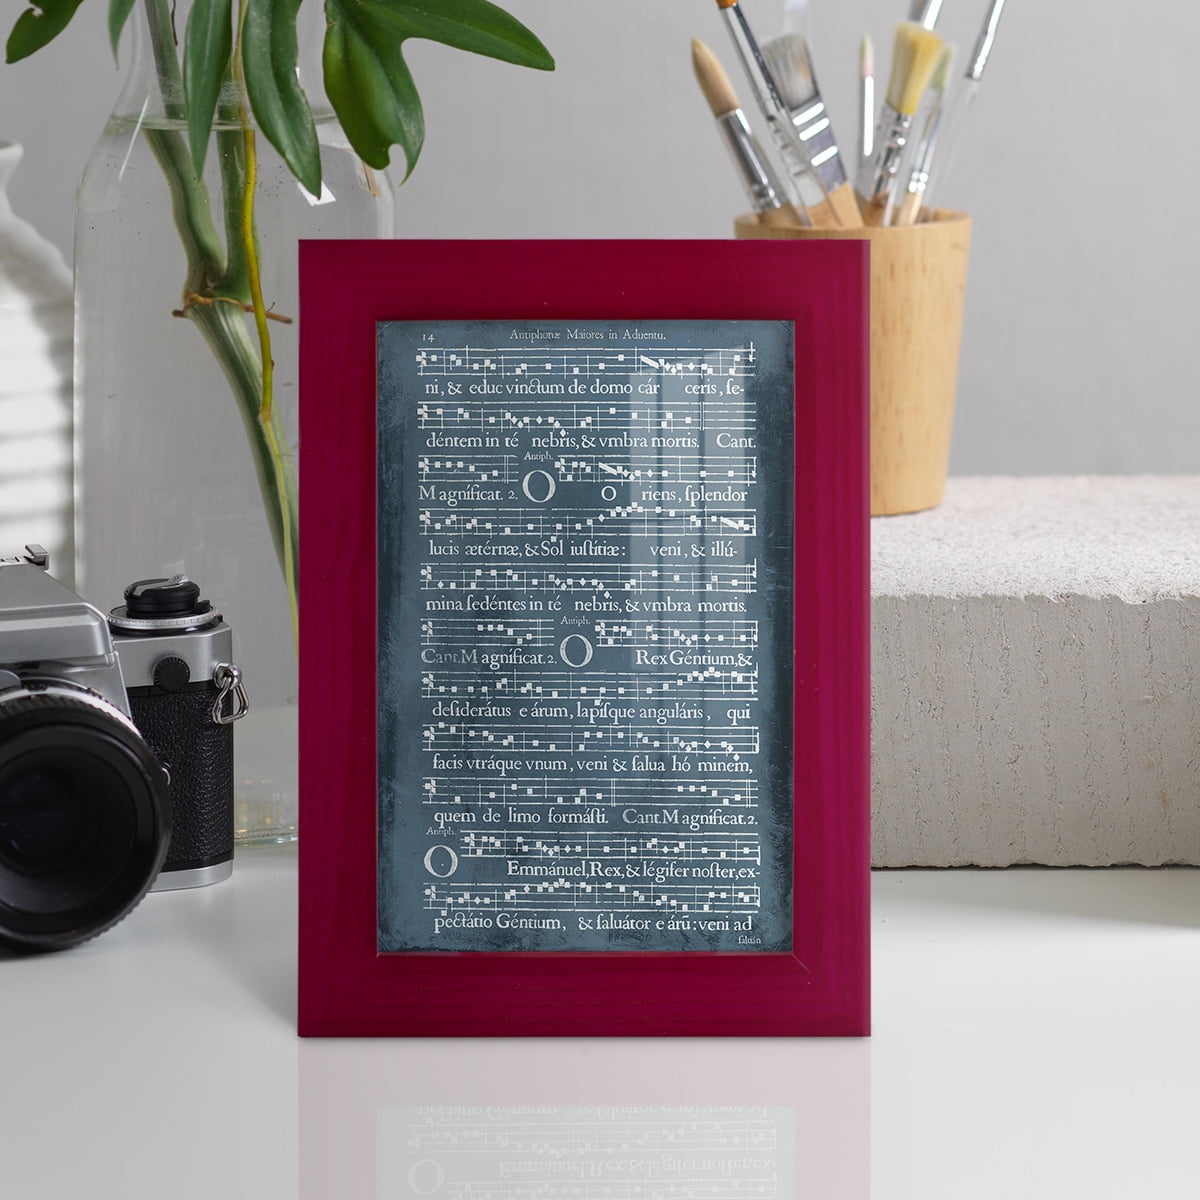 14 Antiphonæ Maiores in Aduentu.
ni, & educ vinctum de domo cár ceris, ſe-
déntem in té nebris, & vmbra mortis. Cant.
Antiph.
Magníficat. 2. O O riens, ſplendor
lucis ætérnæ, & Sol iuſtitiæ: veni, & illú-
mina ſedéntes in té nebris, & vmbra mortis.
Antiph.
Cant. Magníficat. 2. O Rex Géntium, &
deſiderátus eárum, lapiſque anguláris, qui
facis vtráque vnum, veni & ſalua hó minem,
quem de limo formáſti. Cant. Magníficat. 2.
Antiph.
O Emmánuel, Rex, & légifer noſter, ex-
pectátio Géntium, & ſaluátor eárũ: veni ad